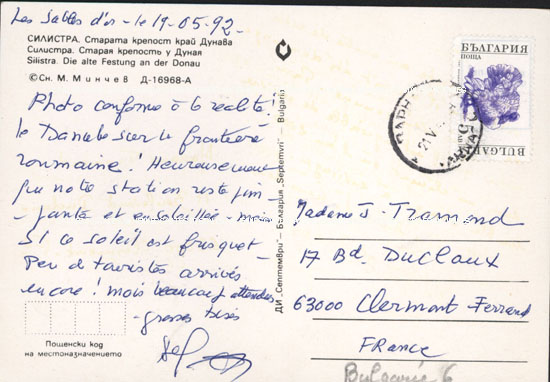 Les Sables d'or - le 19-05-92-
СИЛИСТРА. Старата крепост край Дунава
Силистра. Старая крепость у Дуная
Silistra. Die alte Festung an der Donau
©Сн. М. Минчев Д-16968-А
Photo conforme à la réalité!
le Danube sur la frontière
roumaine! Heureusement
que notre station reste pim-
-pante et ensoleillée - mais
si ce soleil est frisquet -
Peu de touristes arrivés
encore! mais beaucoup attendus
grosses bises
Пощенски код
на местоназначението
ДИ „Септември" – България „Septemvri" – Bulgaria
БЪЛГАРИЯ
ПОЩА
BULGARIA
ВАРНА
Madame J. Tramond
17 Bd. Duclaux
63000 Clermont Ferrand
FRANCE
Bulgarie 6